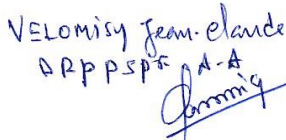 VELOMISY Jean-Claude
DRPPSPF A-A